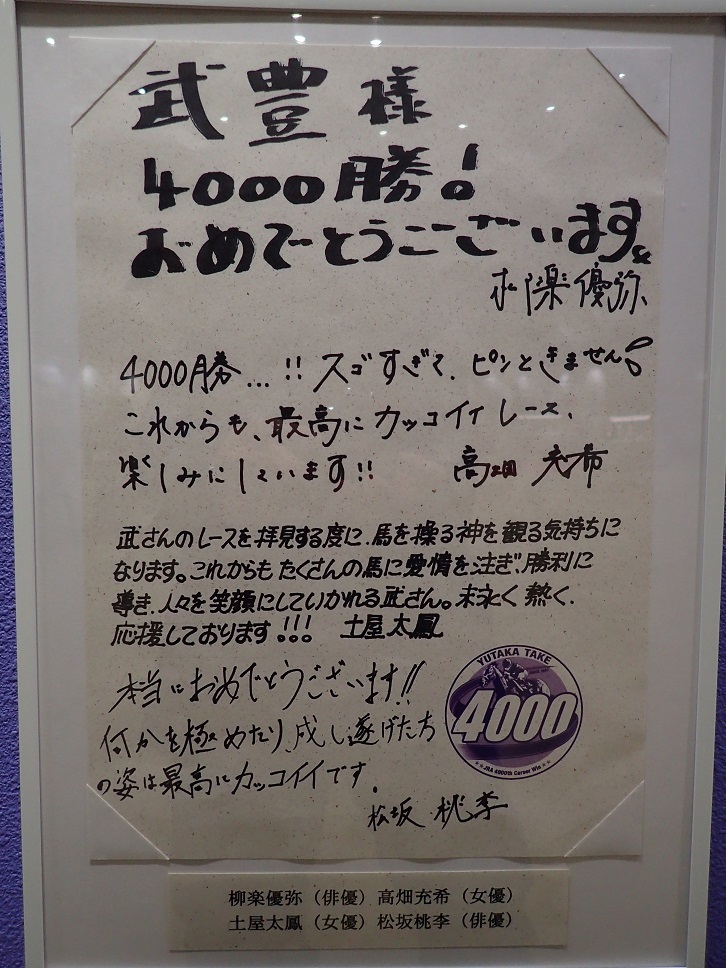 武豊様
4000勝!
おめでとうございます。
柳楽優弥
4000勝...!! スゴすぎて、ピンときません!
これからも、最高にカッコイイレース、
楽しみにしています!!　高畑充希
武さんのレースを拝見する度に、馬を操る神を観る気持ちに
なります。これからもたくさんの馬に愛情を注ぎ、勝利に
導き、人々を笑顔にしていかれる武さん。末永く熱く、
応援しております!!!　土屋太鳳
本当におめでとうございます!!
何かを極めたり、成し遂げたち
の姿は最高にカッコイイです。
松坂桃李
YUTAKA TAKE
4000
JRA 4000th Career Win
柳楽優弥（俳優）高畑充希（女優）
土屋太鳳（女優）松坂桃李（俳優）